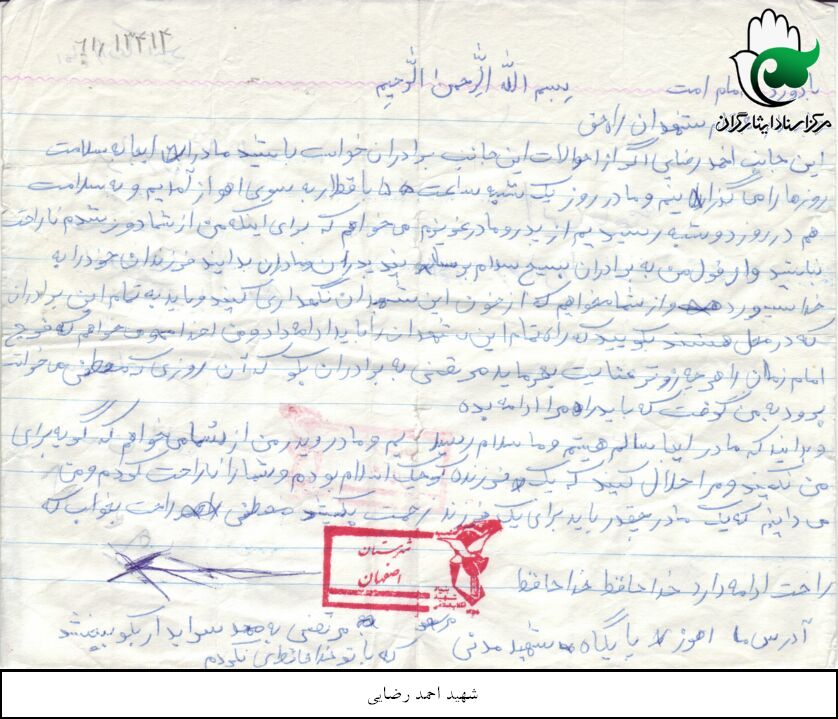 ۶۱/۱۳۴۱۴
بسم الله الرحمن الرحیم
امام امت
شهیدان راه حق
مرکز اسناد ایثارگران
این جانب احمد رضایی اگر از احوالات این جانب برادران خواسته باشید مادر اینجا به سلامت
روزها را می گذرانیم و ما در روز یک شنبه ساعت ۵ با قطار به سوی اهواز آمدیم و به سلامت
هم در روز دوشنبه رسیدیم از پدر و مادر عزیزم می خواهم که برای اینکه من از شما دور شدم ناراحت
نباشید و از قول من به برادران بسیج سلام برسانید پدران مادران بدانید فرزندان خود را به
خدا سپرد و از شما میخواهم که از خون این شهیدان نگهداری کنید و باید به تمام این برادران
که در محل هستند بگویید که راه تمام این شهیدان را باید ادامه داد و من از خدا می خواهم که فرج
امام زمان را هر چه زودتر عنایت بفرماید مرتضی به برادران بگو که آن روزی که مصطفی می خواست
برود به من گفت که باید راه مرا ادامه بده
و بدانید که ما در اینجا سالم هستیم و ما سلام رسیدیم و مادر و پدر من از شما می خواهم که گریه برای
من نکنید و مرا حلال کنید که یک فرزند کوچک اسلام بودم و شما را ناراحت کردم و من
می دانم که یک مادر چقدر باید برای یک فرزند زحمت بکشد مصطفی راحت بخواب که
راهت ادامه دارد خداحافظ خداحافظ
شهرستان
اصفهان
بنیاد
شهید
انقلاب اسلامی
آدرس ما اهواز پایگاه شهید مدنی
مرتضی به بگو ببخشد
که با تو خداحافظی نکردم
شهید احمد رضایی